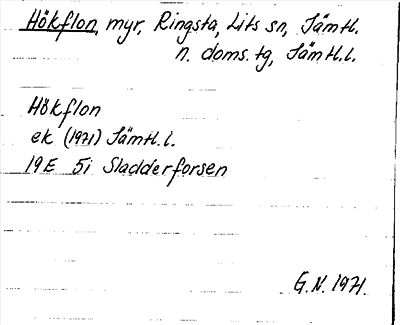 Hökflon, myr, Ringsta, Lits sn, Jämtl.
n. doms. tg, Jämtl.l.
Hökflon
ek (1971) Jämtl.l.
19E 5i Sladderforsen
G.N. 1971.